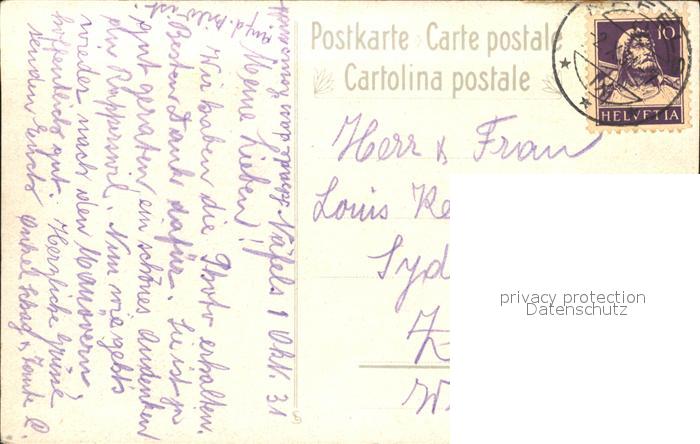 Postkarte Carte postale
Cartolina postale
10
HELVETIA
Näfels 1 Okt. 31
Meine Lieben!
Wir haben die Photo erhalten.
Besten Dank dafür. Sie ist ja
gut geraten ein schönes Andenken
an Rapperswil. Nun wie gehts
wieder nach den Manövern,
hoffentlich gut. Herzliche Grüsse
senden Euch Onkel & Tante
Herr & Frau
Louis Ke
Syd
Z
W
privacy protection
Datenschutz